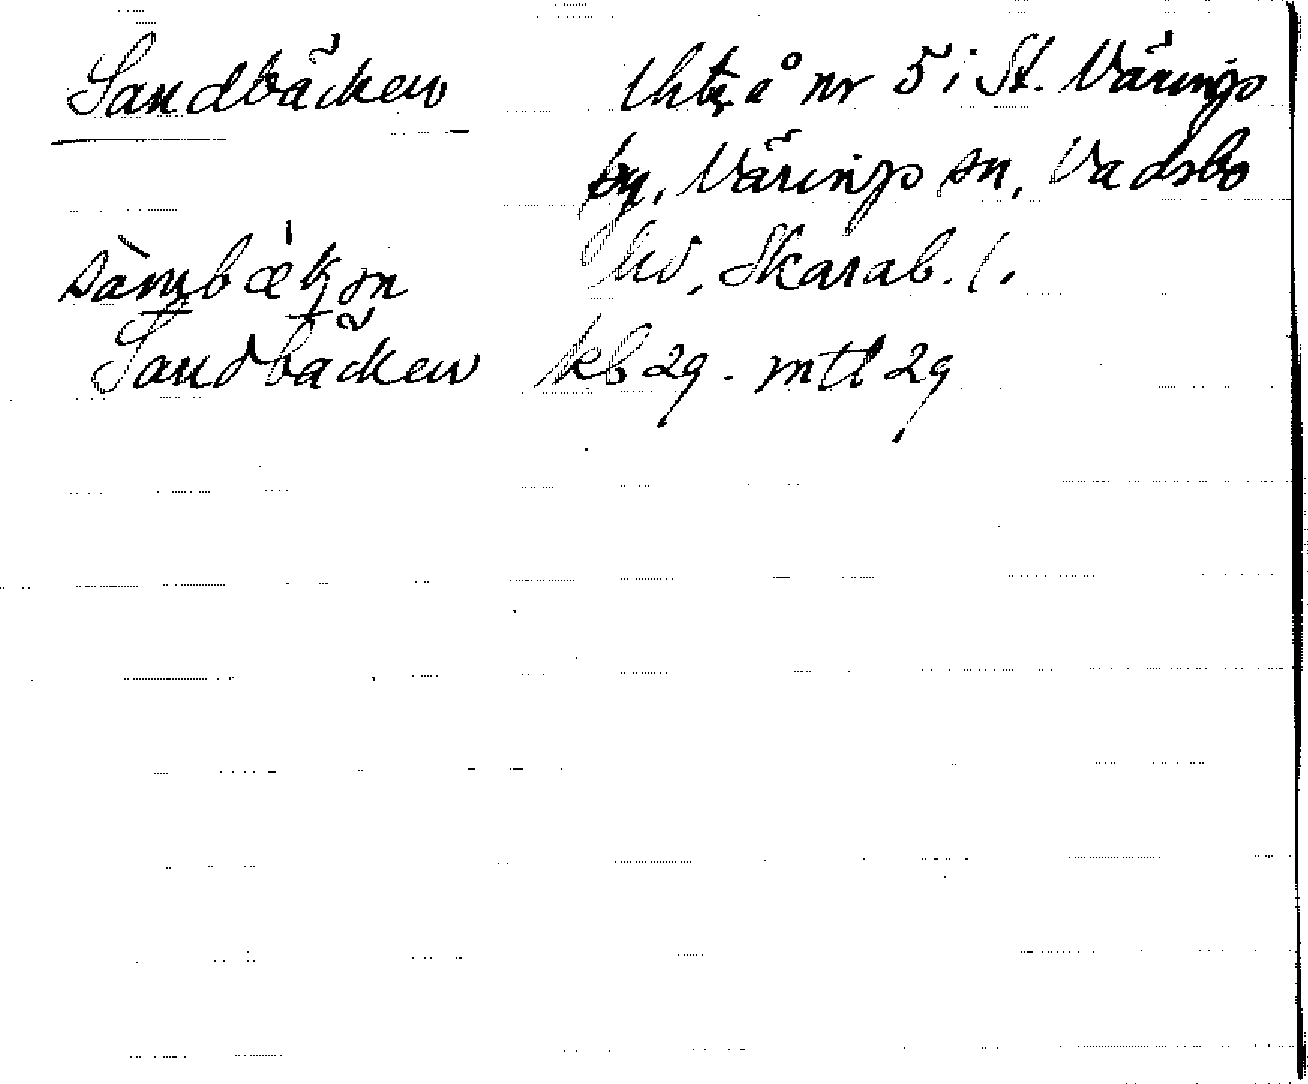 Sandbäcken lht å nr 5 i St. Värings
by, Värings sn, Vadsbo
hd, Skarab. l.
Sandbäcken kb 29. mtl 29